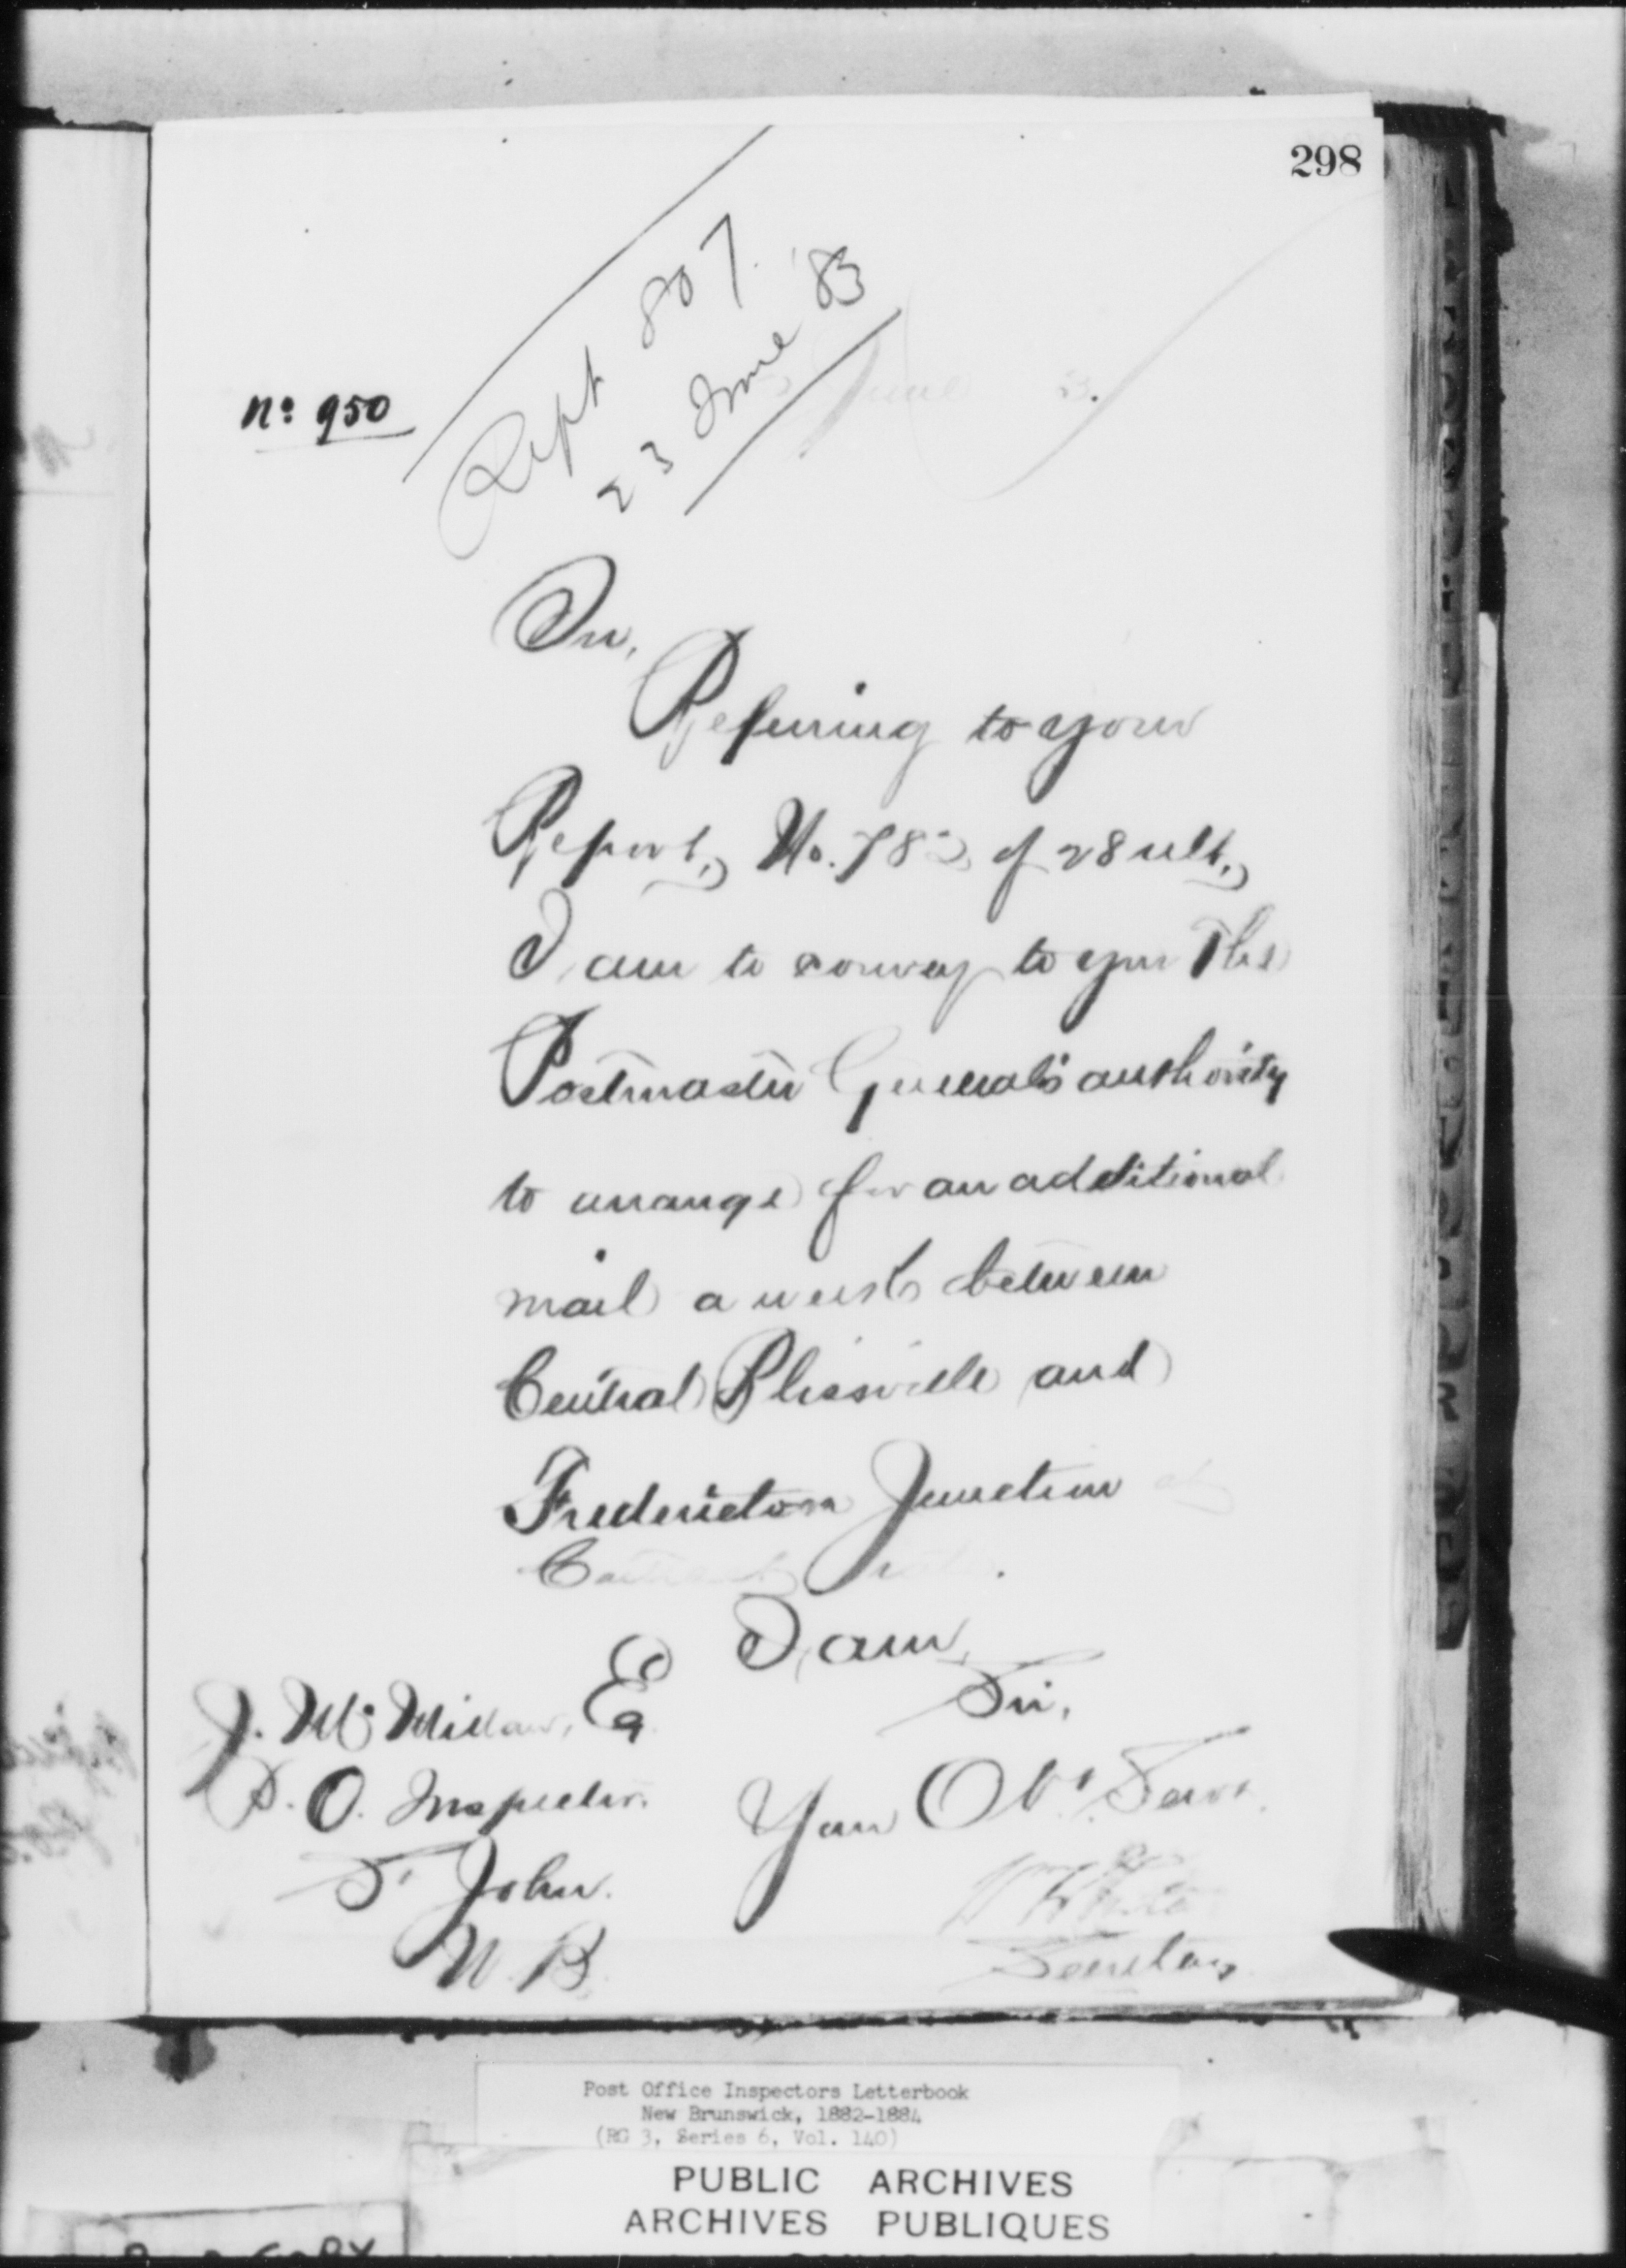 298
Rept 807
23 June '83
No. 950
June
Sir,
Referring to your
Report, No. 78 of 28 ult.,
I am to convey to you the
Postmaster General's authority
to arrange for an additional
mail a week between
Central Blissville and
Fredericton Junction at
I am,
Sir,
J. Mc Millan, Eq
P. O. Inspector.
Your Obt. Servt.
St John.
N. B.
Secretary
Post Office Inspectors Letterbook
New Brunswick, 1882-1884
(RG 3, Series 6, Vol. 140)
PUBLIC ARCHIVES
ARCHIVES PUBLIQUES
COPY